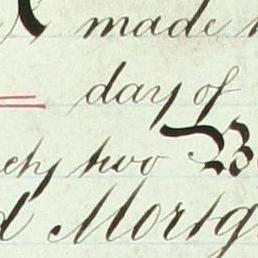 made
day of
ety two B
d Mortg